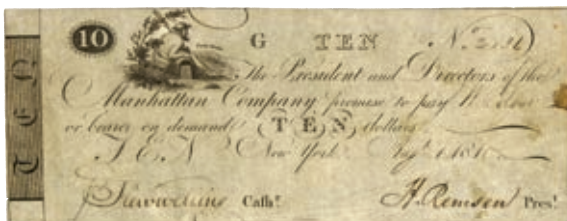 10 G TEN
The President and Directors of the
Manhattan Company promise to pay
or bearer on demand TEN dollars
TEN New York
Cashr. H. Remsen Pres!
TEN